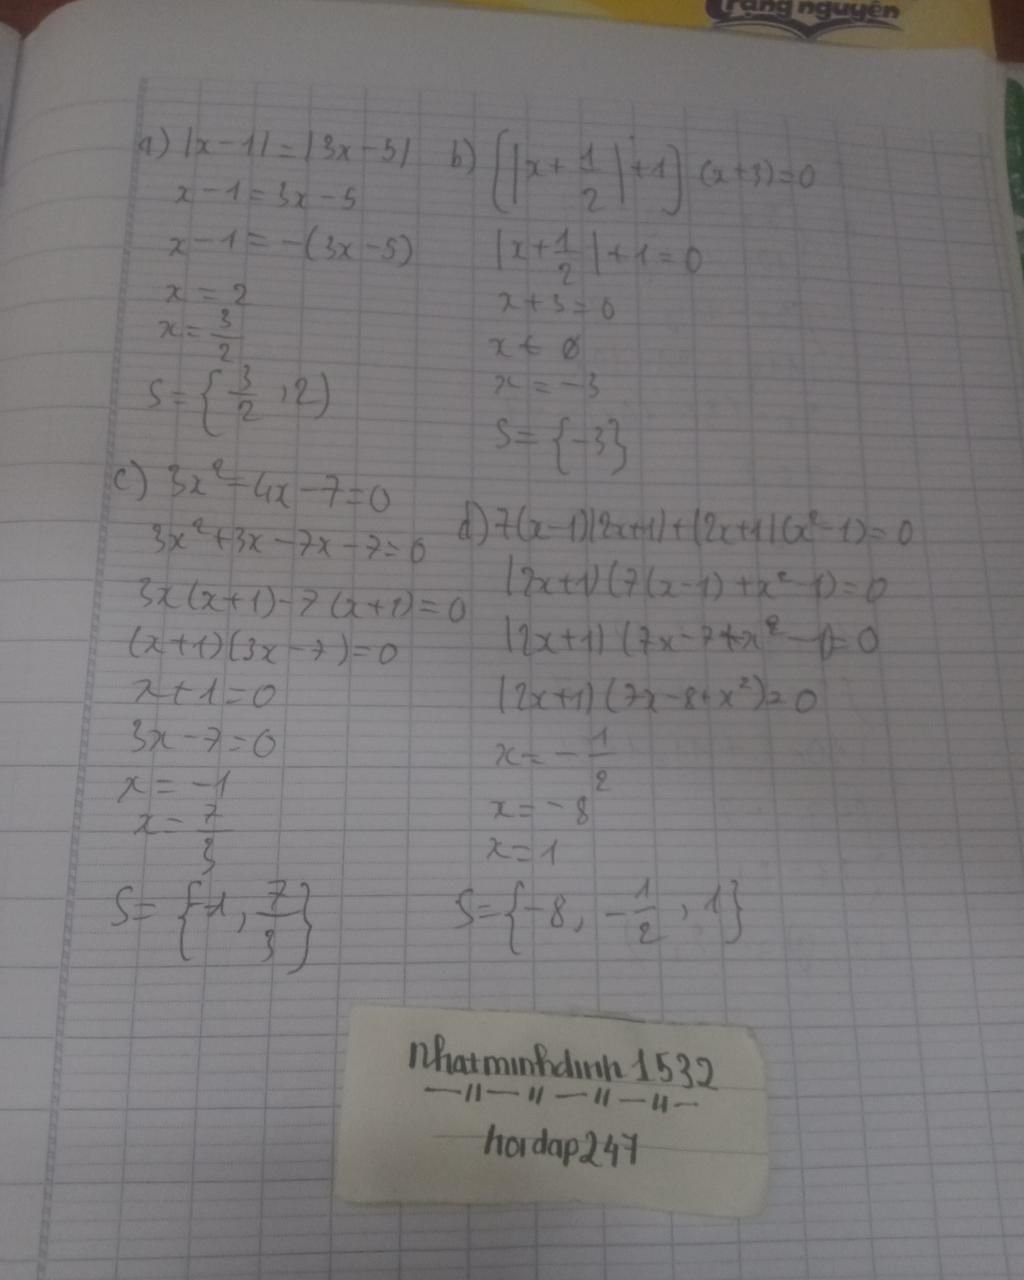 Trạng nguyên
a) |x-1| = |3x-5|
x-1 = 3x-5
x-1 = -(3x-5)
x = 2
x = 3/2
S = {3/2, 2}
b) [|x+1/2|+1] (x+3)=0
|x+1/2|+1=0
x+3=0
x ∈ ∅
x = -3
S = {-3}
c) 3x²-4x-7=0
3x²+3x-7x-7=0
3x(x+1)-7(x+1)=0
(x+1)(3x-7)=0
x+1=0
3x-7=0
x = -1
x = 7/3
S = {-1, 7/3}
d) 7(x-1)(2x+1)+(2x+1)(x²-1)=0
(2x+1)(7(x-1)+x²-1)=0
(2x+1)(7x-7+x²-1)=0
(2x+1)(7x-8+x²)=0
x = -1/2
x = -8
x = 1
S = {-8, -1/2, 1}
nhatminhdinh1532
—"—"—"—"—
hoidap247